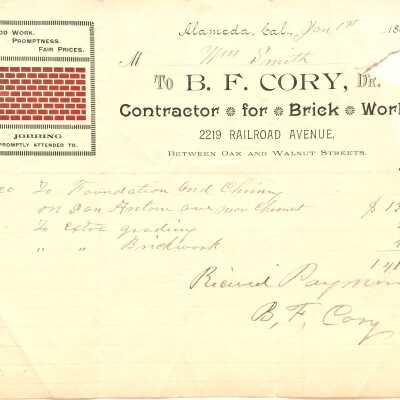 OD WORK.
PROMPTNESS.
FAIR PRICES.
JOBBING
PROMPTLY ATTENDED TO.
Alameda, Cal., Jan 1st 18
M Wm Smith
To B. F. CORY, Dr.
Contractor for Brick Wor
2219 RAILROAD AVENUE,
BETWEEN OAK AND WALNUT STREETS.
To Foundation and Chimny
on San Antone ave near Chesnut $ 13
To extra grading
" " Brickwork
141
Recievd Paymen
B. F. Cory